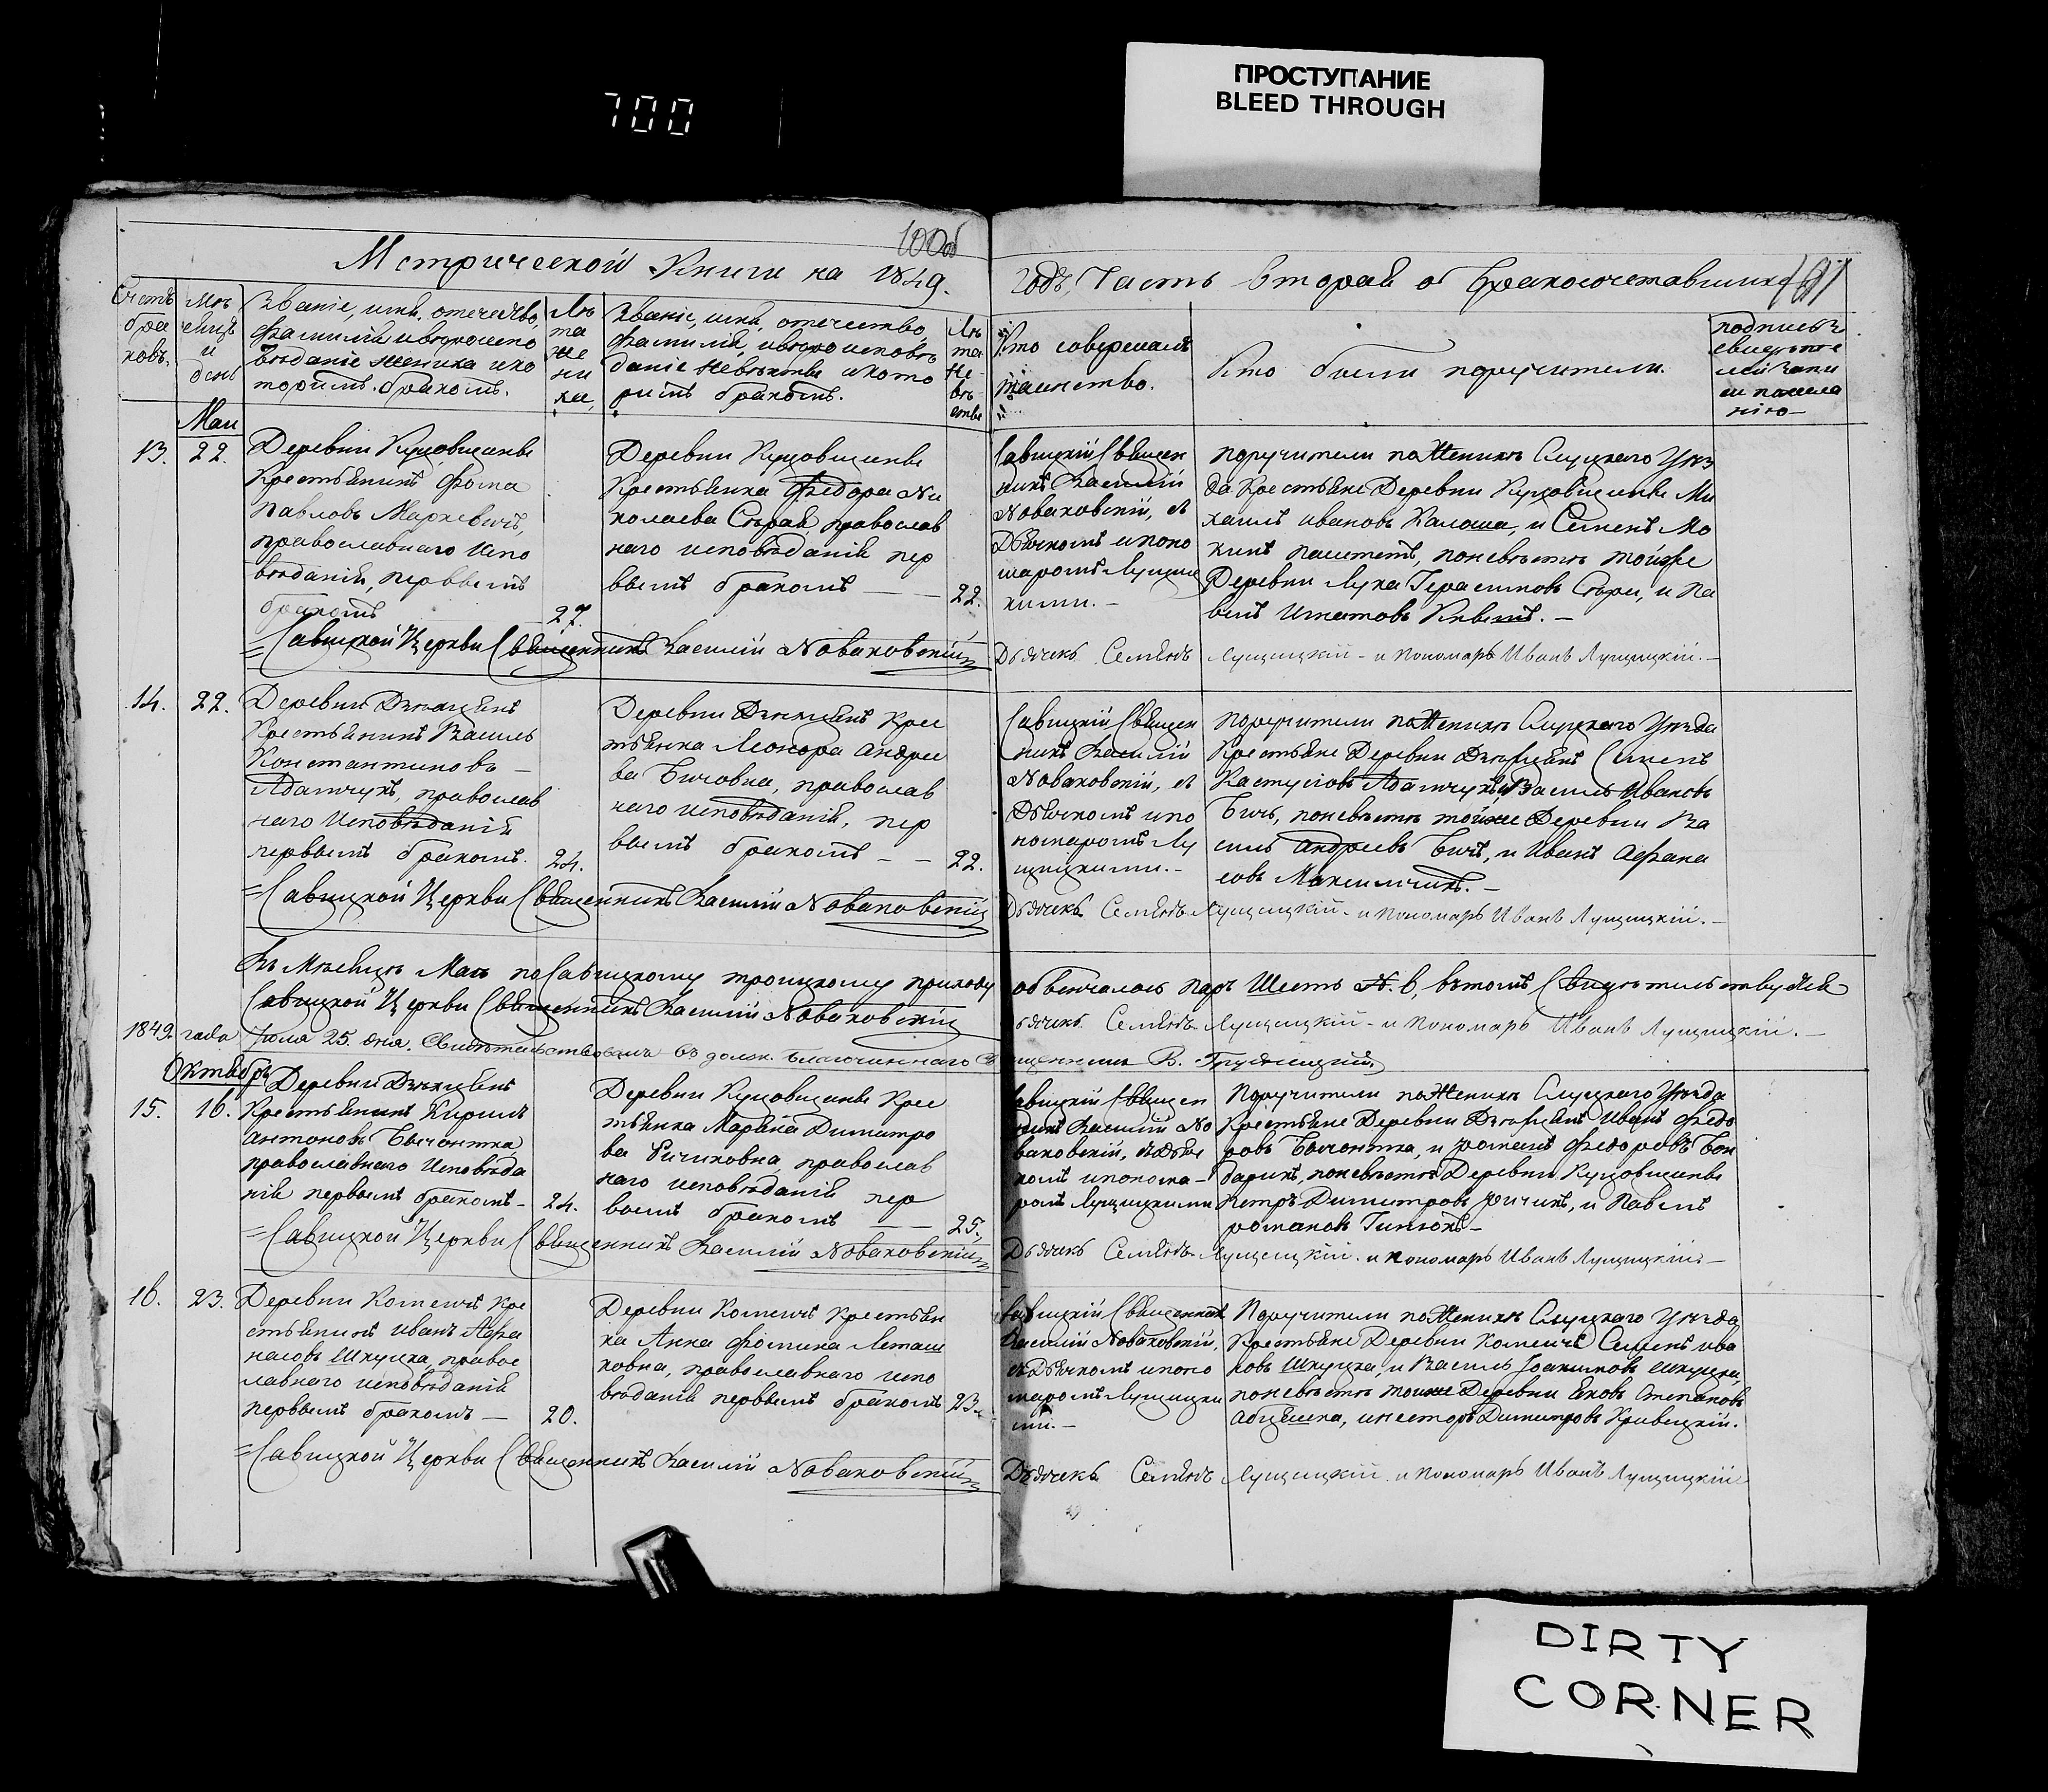 ПРОСТУПАНИЕ
BLEED THROUGH
700
100об
Метрической Книги на 1849.
годъ, Часть вторая о бракосочетавшихся
Счетъ браковъ.
Мѣсяцъ и день
Званіе, имя, отечество,
фамилія и вѣроиспо
вѣданіе жениха и ко
торымъ бракомъ.
Лѣта жениха
Званіе, имя, отечество
фамилія, и вѣроисповѣ
даніе невѣсты и кото
рымъ бракомъ.
Лѣта невѣсты
Кто совершалъ
таинство.
Кто были поручители.
подпись
свидѣте
лей запи
си по жела
нію
Маи
13. 22.
Деревни Куцовщины
Крестьянинъ Фома
Павловъ Маркевичъ,
православнаго испо
вѣданія, первымъ
бракомъ 27.
Деревни Куцовщины
Крестьянка Федора Ни
колаева Сѣрая, православ
наго исповѣданія пер
вымъ бракомъ — — 22.
Савицкій Священ
никъ Василій
Новаковскій, съ
Дьячкомъ и поно
маромъ Лущиц
кими. —
Поручители по Женихѣ Слуцкаго Уѣз
да Крестьяне Деревни Куцовщины Ми
хаилъ Ивановъ Калоша, и Семенъ Мо
кинъ, по невѣстѣ тойже
Деревни Лука Герасимовъ Сѣры, и Па
велъ Игнатовъ. —
= Савицкой Церкви Священникъ Василій Новаковскій
Дьячекъ Семіонъ Лущицкій - и пономарь Иванъ Лущицкій. —
14. 22.
Деревни
Крестьянинъ Василь
Константиновъ —
Адамчукъ, православ
наго исповѣданія
первымъ бракомъ. 24.
Деревни Крес
тьянка Леонора Андрее
ва Бичовна, православ
наго исповѣданія, пер
вымъ бракомъ — — 22.
Савицкій Священ
никъ Василій
Новаковскій, съ
Дьячкомъ и по
номаромъ Лу
щицкими. —
Поручители по Женихѣ Слуцкаго Уѣзда
Крестьяне Деревни Симонъ
Кастусіовъ Адамчукъ и Василь Ивановъ
Бичъ, по невѣстѣ тойже Деревни Ва
силь Андреевъ Бичъ, и Иванъ Афана
совъ Максимчикъ. —
= Савицкой Церкви Священникъ Василій Новаковскій
Дьячекъ Семіонъ Лущицкій - и пономарь Иванъ Лущицкій. —
Въ Мѣсяцѣ Маи по Савицкому троицкому приходу обвѣнчалось паръ Шесть N. 6, вътомъ Свидѣтельствуемъ
Савицкой Церкви Священникъ Василій Новаковскій
Дьячекъ Семіонъ Лущицкій - и пономарь Иванъ Лущицкій. —
1849. года Іюля 25. дня. Свидѣтельствовалъ въ долж. благочиннаго Священникъ В.
Октябрь
15. 16.
Деревни
Крестьянинъ Кирилъ
Антоновъ
православнаго Исповѣда
нія первымъ бракомъ — 24.
Деревни Куцовщины Крес
тьянка Марына Димитро
ва, православ
наго исповѣданія пер
вымъ бракомъ — — 25.
Савицкій Священ
никъ Василій Но
ваковскій, съ Дьяч
комъ и понома —
ромъ Лущицкими
Поручители по Женихѣ Слуцкаго Уѣзда
Крестьяне Деревни Иванъ Федо
ровъ, и романъ Федоровъ Бон
дарикъ, по невѣстѣ Деревни Куцовщины
Петръ Димитровъ, и Павелъ
романовъ —
= Савицкой Церкви Священникъ Василій Новаковскій
Дьячекъ Семіонъ Лущицкій - и пономарь Иванъ Лущицкій —
16. 23.
Деревни Копенчъ Кре
стьянинъ Иванъ Афа
насовъ Шкуцка, право
славнаго исповѣданія
первымъ бракомъ — 20.
Деревни Копенчъ Крестьян
ка Анна Фомина
ковна, православнаго испо
вѣданія первымъ бракомъ 23.
Савицкій Священникъ
Василій Новаковскій,
съ Дьячкомъ и поно
маромъ Лущицки
ми. —
Поручители по Женихѣ Слуцкаго Уѣзда
Крестьяне Деревни Копенчъ Семенъ Ива
новъ Шкуцка, и Василь Іоакимовъ Шкуцка,
по невѣстѣ тойже Деревни Яковъ Степановъ
и нестеръ Димитровъ Кривицкій.
= Савицкой Церкви Священникъ Василій Новаковскій
Дьячекъ Семіонъ Лущицкій и пономарь Иванъ Лущицкій
DIRTY
CORNER